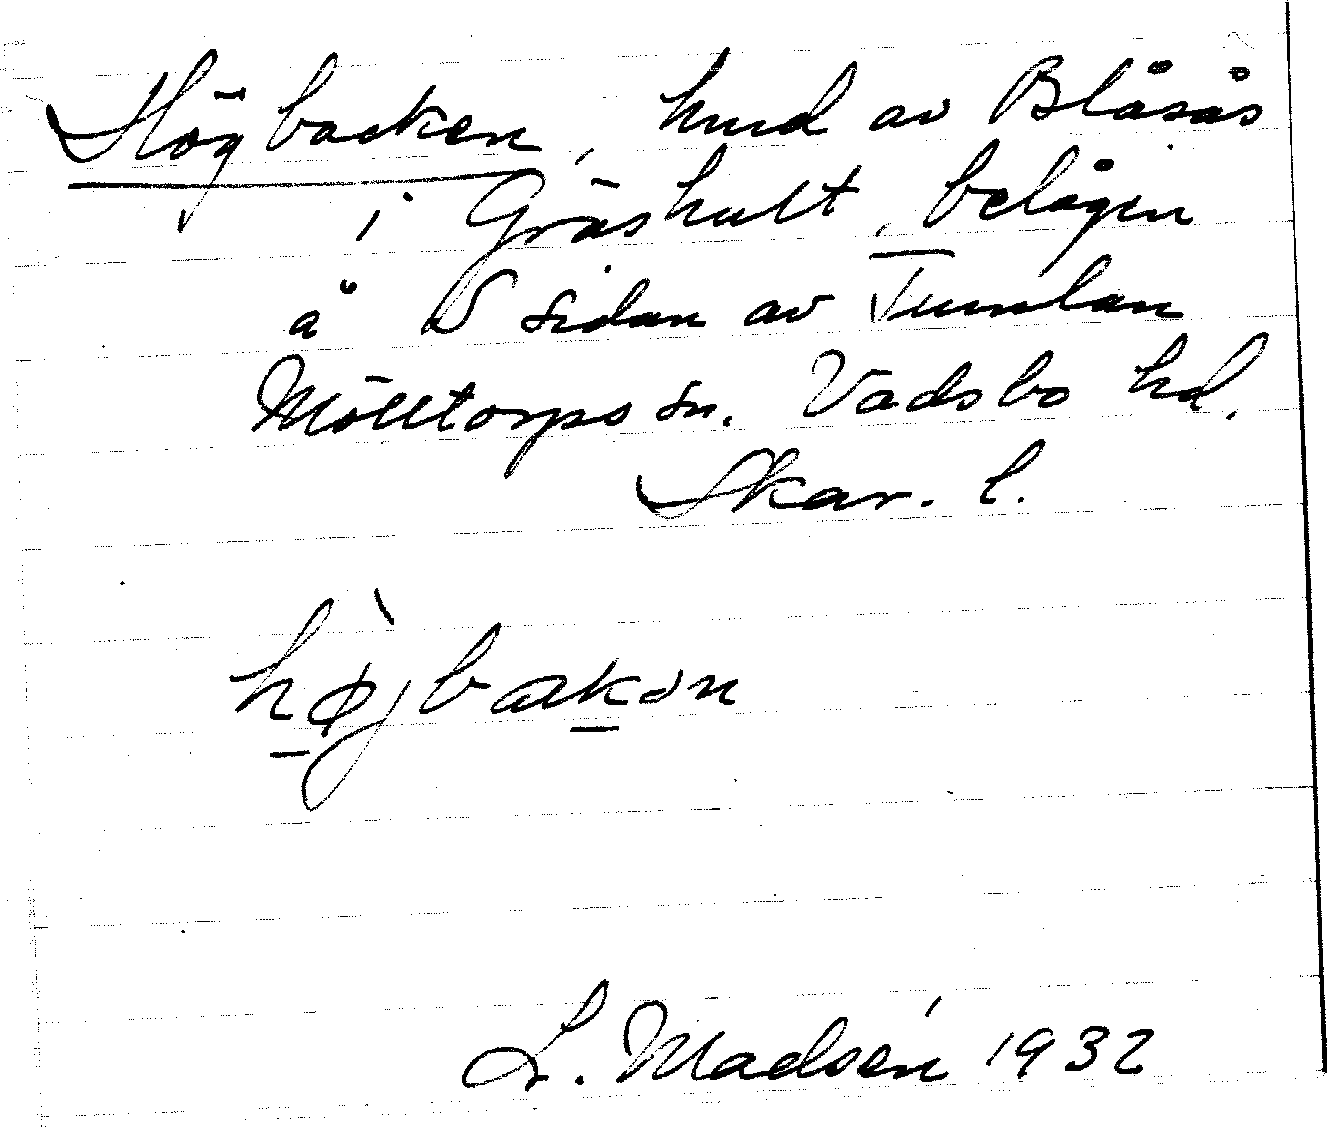 Högbacken, hmd av Blåsås
i Gräshult, belägen
å S sidan av Tumlan
Mölltorps sn. Vadsbo hd.
Skar. l.
hø̀jbakən
L. Madsén 1932